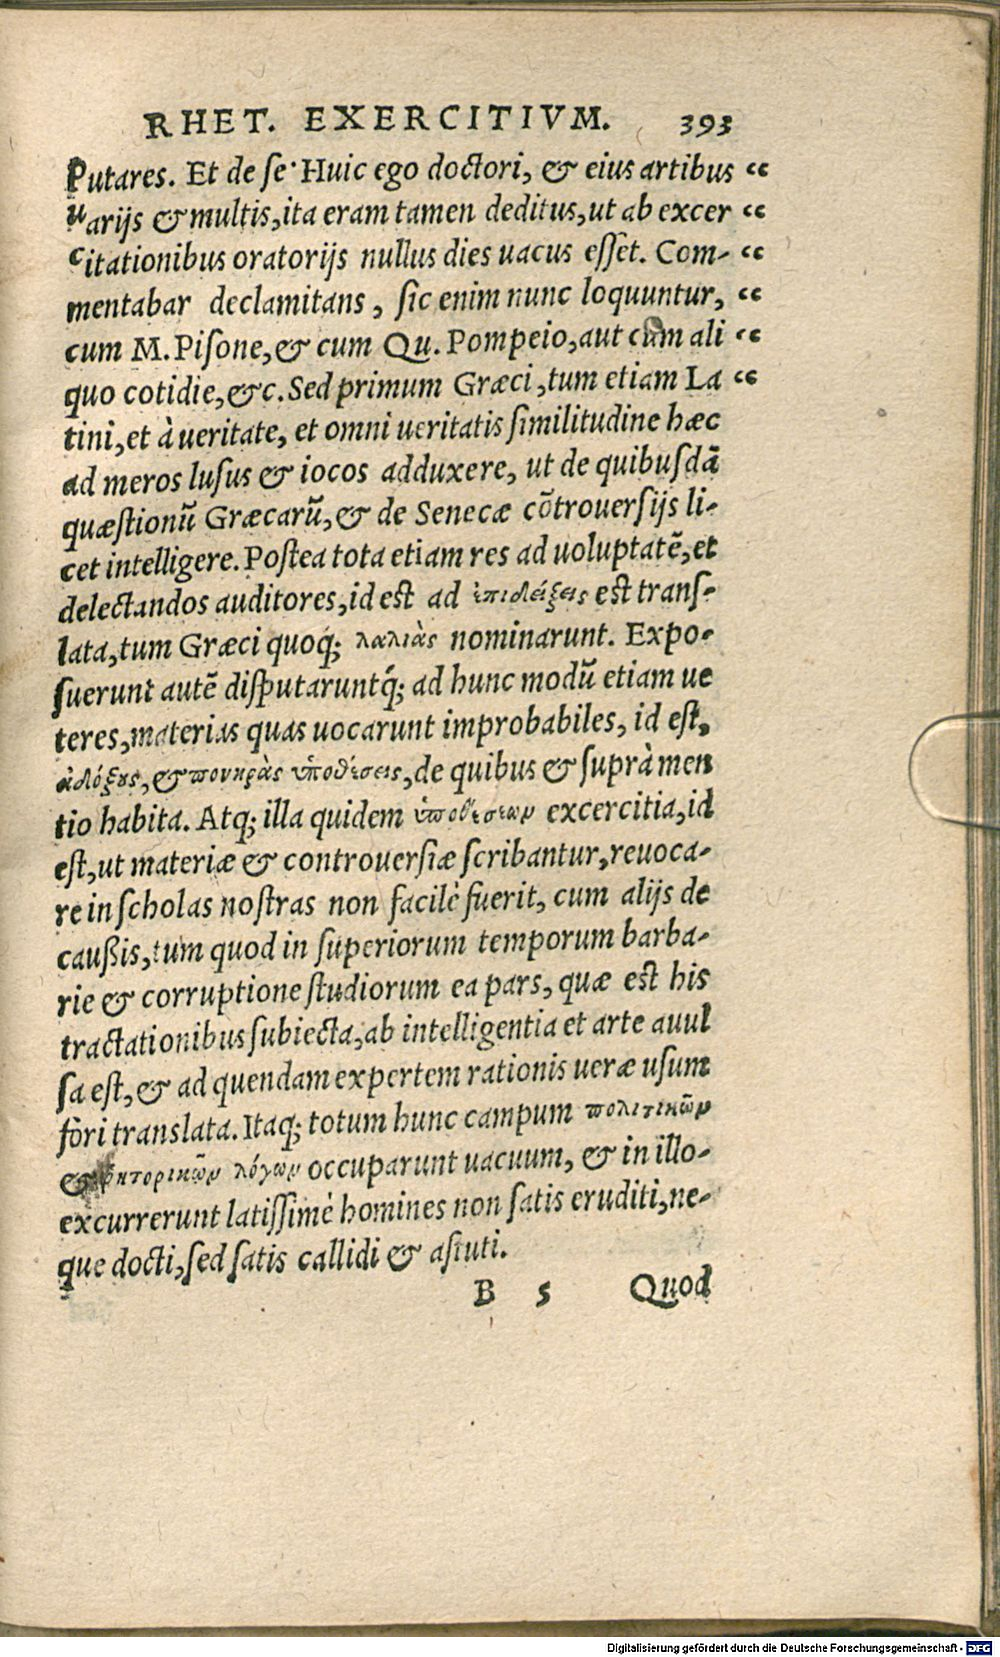 RHET. EXERCITIVM. 393
Putares. Et de se· Huic ego doctori, & eius artibus “
uarijs & multis, ita eram tamen deditus, ut ab excer “
citationibus oratorijs nullus dies uacus esset. Com- “
mentabar declamitans, sic enim nunc loquuntur, “
cum M. Pisone, & cum Qu. Pompeio, aut cum ali “
quo cotidie, &c. Sed primum Græci, tum etiam La “
tini, et à ueritate, et omni ueritatis similitudine hæc
ad meros lusus & iocos adduxere, ut de quibusdã
quæstionũ Græcarũ, & de Senecæ cõtrouersijs li-
cet intelligere. Postea tota etiam res ad uoluptatẽ, et
delectandos auditores, id est ad ἐπιδείξεις est trans-
lata, tum Græci quoq; λαλιὰς nominarunt. Expo-
suerunt autẽ disputaruntq́; ad hunc modũ etiam ue
teres, materias quas uocarunt improbabiles, id est,
ἀδόξους, & πονηρὰς ὑποθέσεις, de quibus & suprà men
tio habita. Atq; illa quidem ὑποθέσεων excercitia, id
est, ut materiæ & controuersiæ scribantur, reuoca-
re in scholas nostras non facilè fuerit, cum alijs de
caußis, tum quod in superiorum temporum barba-
rie & corruptione studiorum ea pars, quæ est his
tractationibus subiecta, ab intelligentia et arte auul
sa est, & ad quendam expertem rationis ueræ usum
fòri translata. Itaq; totum hunc campum πολιτικῶν
& ῥητορικῶν λόγων occuparunt uacuum, & in illo-
excurrerunt latissimè homines non satis eruditi, ne-
que docti, sed satis callidi & astuti.
B 5 Quod
Digitalisierung gefördert durch die Deutsche Forschungsgemeinschaft - DFG